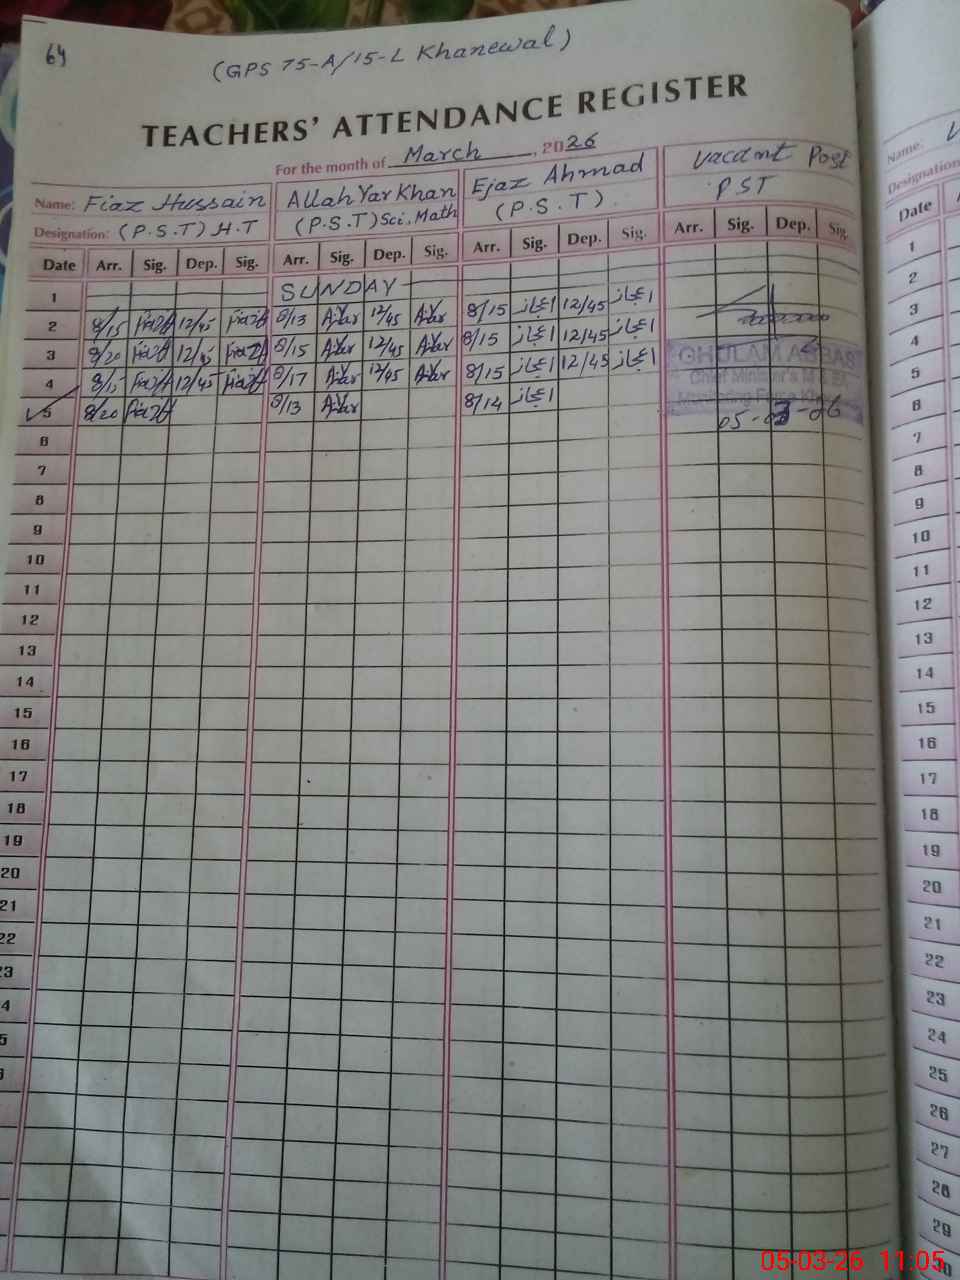 64
(GPS 75-A/15-L Khanewal)
TEACHERS' ATTENDANCE REGISTER
For the month of March, 2026
Name: Fiaz Hussain Allah Yar Khan Ejaz Ahmad Vacant Post
Designation: (P.S.T) H.T (P.S.T) Sci, Math (P.S.T) PST
Date Arr. Sig. Dep. Sig. Arr. Sig. Dep. Sig. Arr. Sig. Dep. Sig. Arr. Sig. Dep. Sig.
1 SUNDAY
2 8/15 Fiaz 12/45 Fiaz 8/13 12/45 8/15 اعجاز 12/45 اعجاز
3 8/20 Fiaz 12/45 Fiaz 8/15 12/45 8/15 اعجاز 12/45 اعجاز
4 8/15 Fiaz 12/45 Fiaz 8/17 12/45 8/15 اعجاز 12/45 اعجاز
5 8/20 Fiaz 8/13 8/14 اعجاز
GHULAM ABBAS
Chief Minister's M
Monitoring Force
05-03-26
6
7
8
9
10
11
12
13
14
15
16
17
18
19
20
21
22
23
4
5
Name:
Designation
Date
1
2
3
4
5
6
7
8
9
10
11
12
13
14
15
16
17
18
19
20
21
22
23
24
25
26
27
28
29
05-03-26 11:05